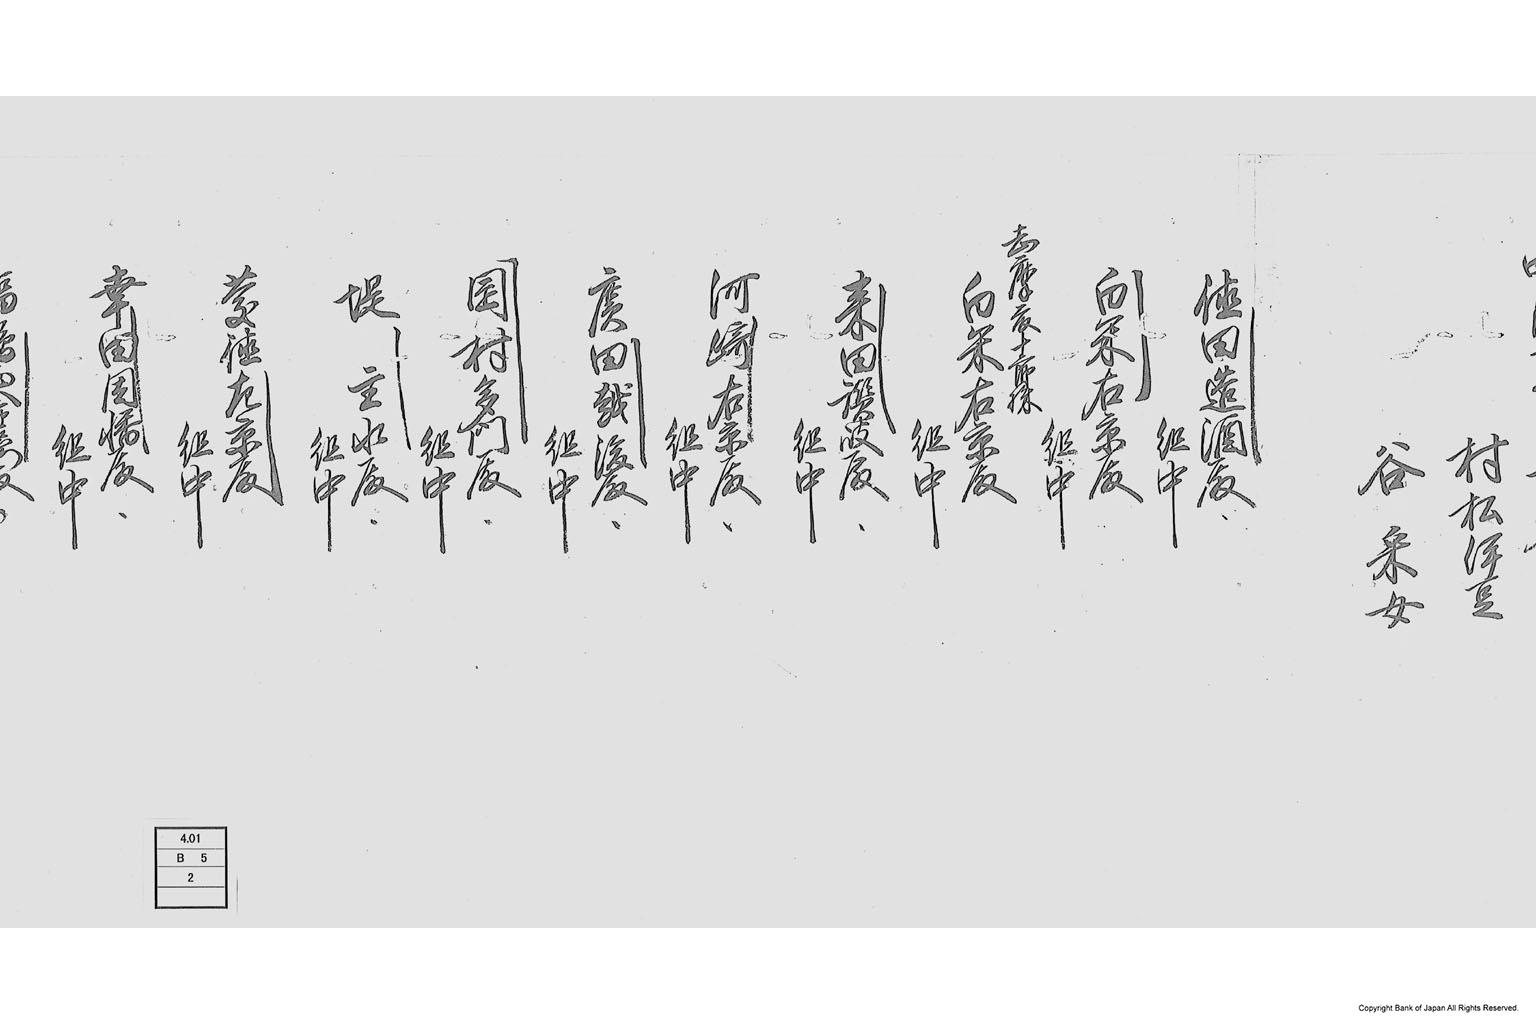 村松伊豆
谷 采女
徳田造酒殿
組中
向矢右京殿
組中
志摩殿十郎様
向矢右京殿
組中
来田讃岐殿
組中
河崎右京殿
組中
廣田越後殿
組中
岡村多門殿
組中
堤 主水殿
組中
慶徳左京殿
組中
幸田因幡殿
組中
4.01
B 5
2
Copyright Bank of Japan All Rights Reserved.